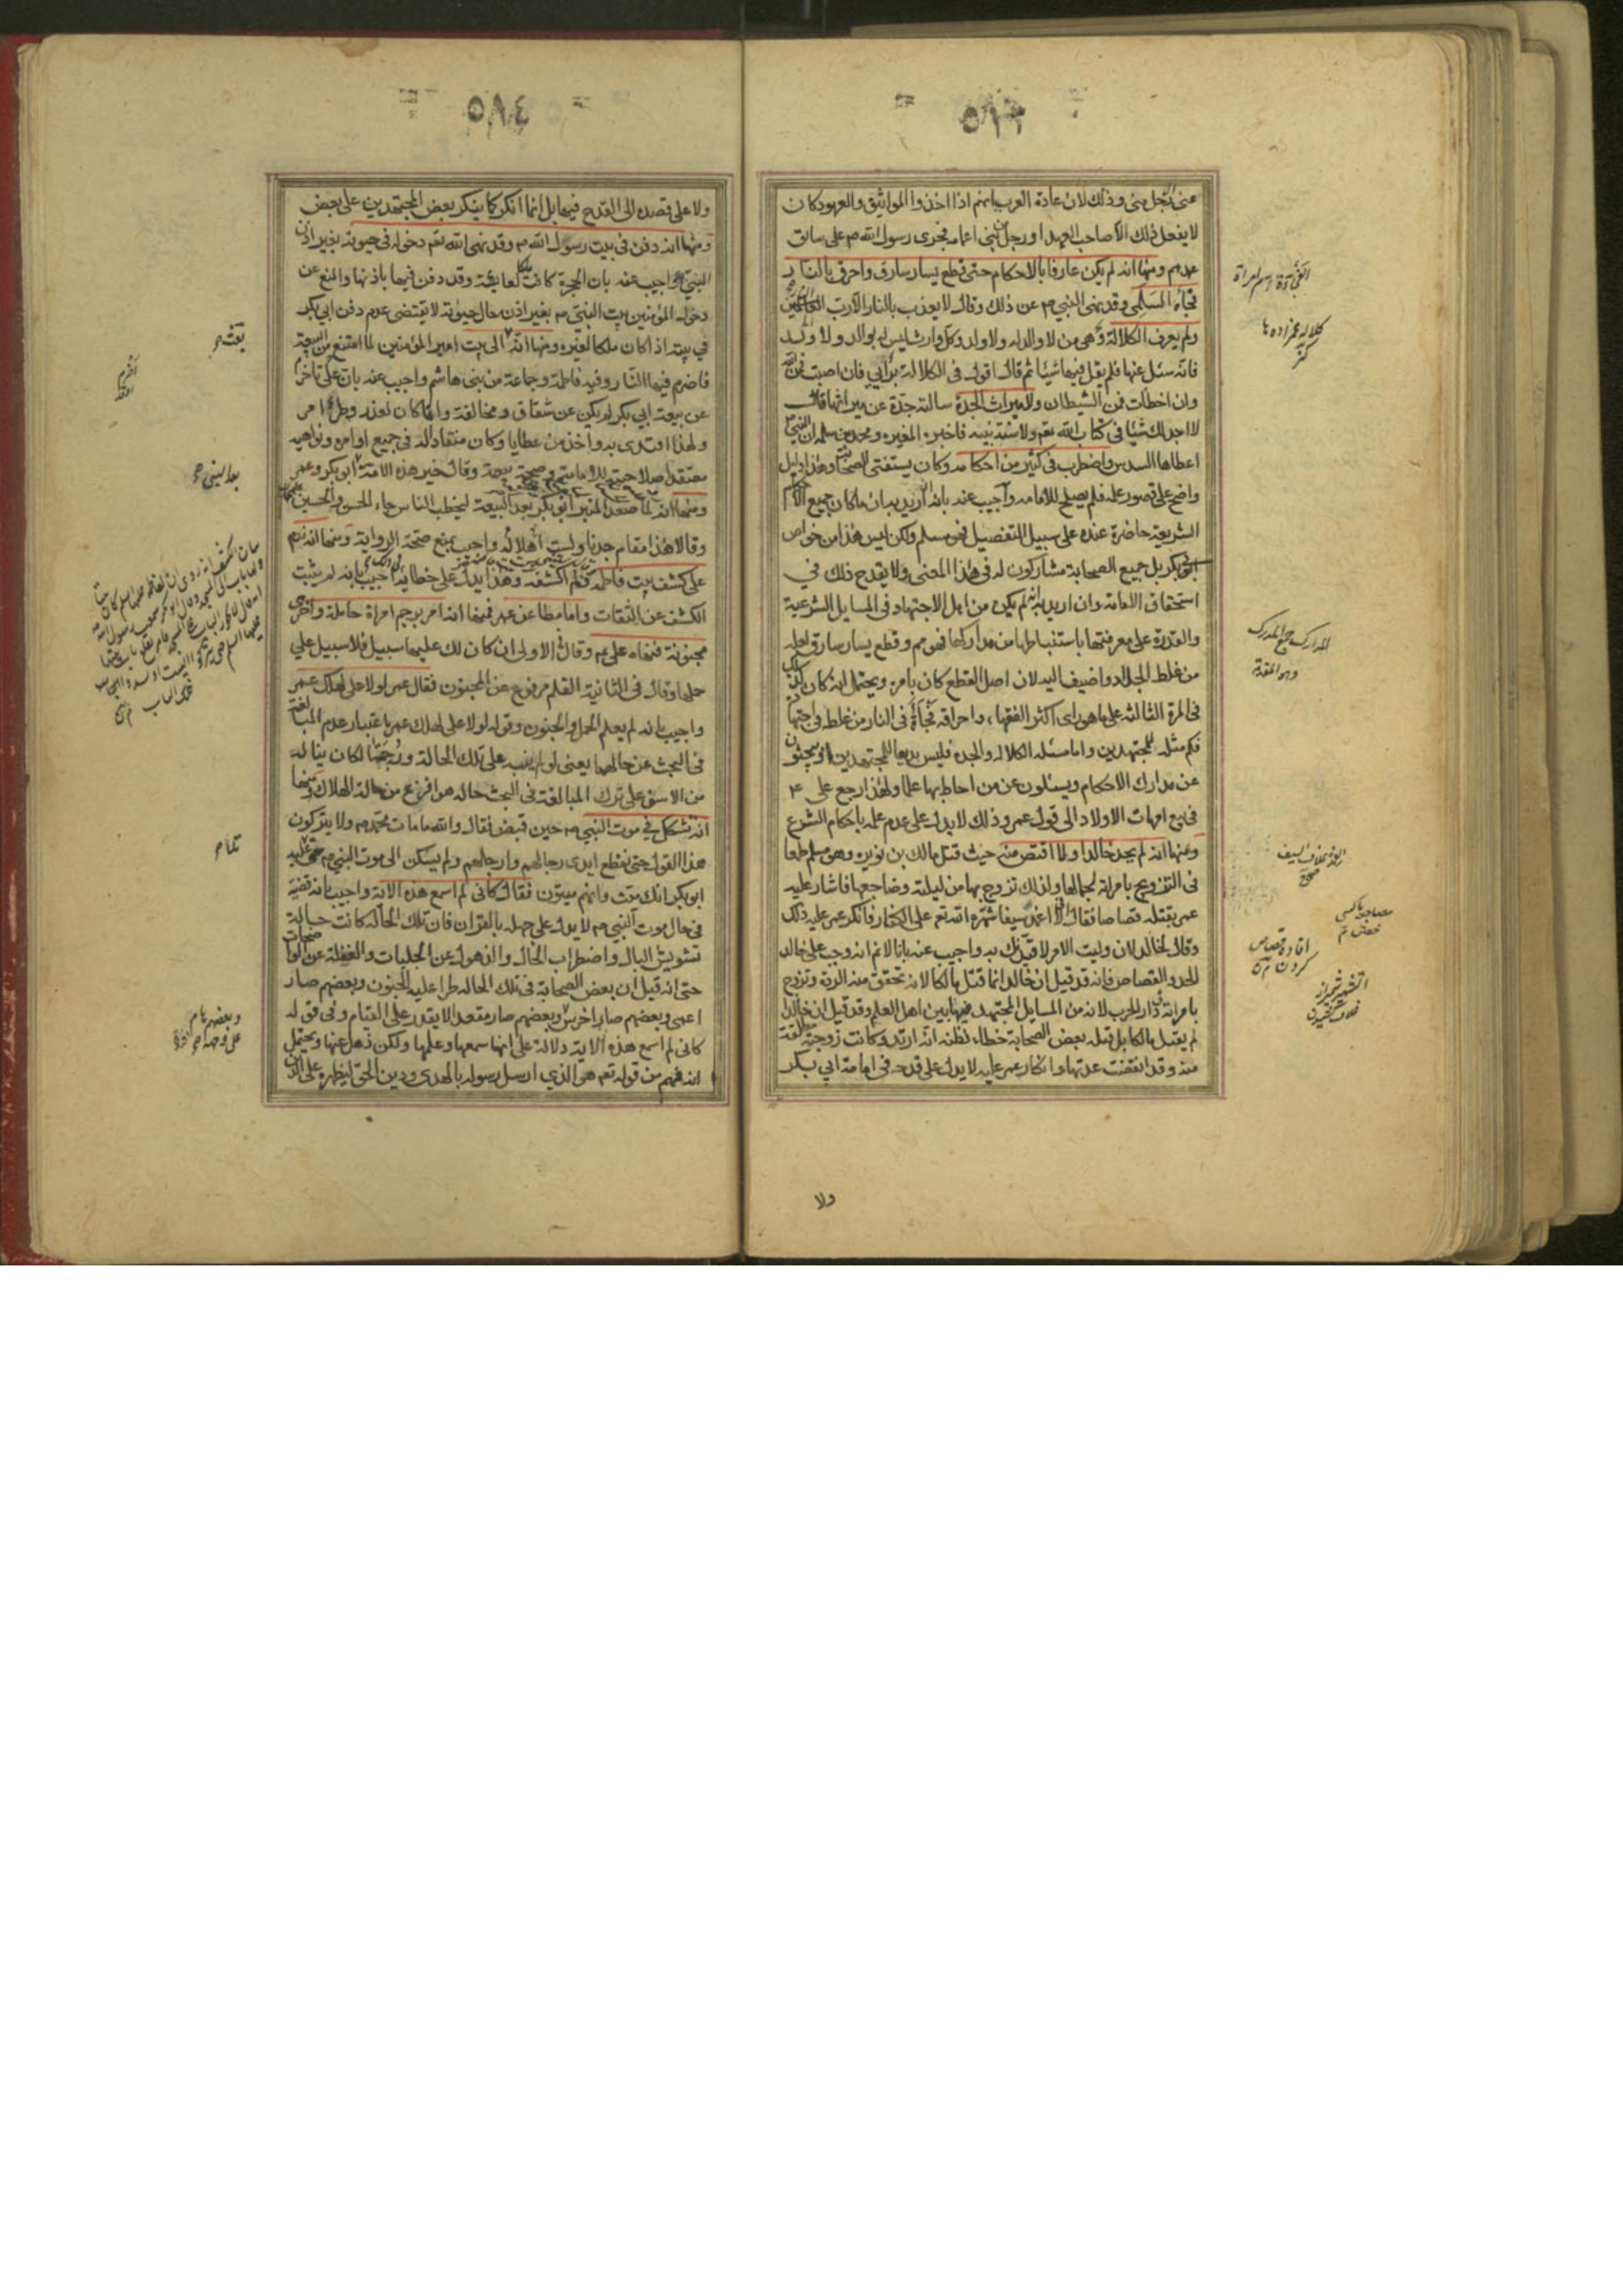 عنى رجل منى وذلك لان عادة العرب انهم اذا اخذوا المواثيق والعهود كان
لا يفعل ذلك الا صاحب العهد او رجل من بنى اعمامه فجرى رسول الله ص على سابق
عهدهم ومنها انه لم يكن عارفا بالاحكام حتى قطع يسار سارق واحرق بالنار
فجأة السلمى وقد نهى النبى ص عن ذلك وقال لا يعذب بالنار الا رب النار
ولم يعرف الكلالة وهى من لا والد له ولا ولد وكل وارث ليس له بوالد ولا ولد
فانه سئل عنها فلم يقل فيها شيئا ثم قال اقول فى الكلالة برأيى فان اصبت فمن الله
وان اخطأت فمن الشيطان ولا ميراث الجدة سألته جدة عن ميراثها فقال
لا اجد لك شيئا فى كتاب الله تعم ولا سنة نبيه فاخبره المغيرة ومحمد بن سلمه ان النبى
اعطاها السدس واضطرب فى كثير من احكامه وكان يستفتى الصحابة وهذا دليل
واضح على قصور علمه فلم يصلح للامامه واجيب عنه بانه ان اريد به انه ما كان جميع احكام
الشريعة حاضرة عنده على سبيل التفصيل فهو مسلم ولكن ليس هذا من خواص
ابى بكر بل جميع الصحابة مشاركون له فى هذا المعنى ولا يقدح ذلك في
استحقاق الامامة وان اريد به انه لم يكن من اهل الاجتهاد فى المسايل الشرعية
والقدرة على معرفتها باستنباطها من مداركها فهو مم وقطع يسار سارق لعله
من غلط الجلاد واضيف اليه لان اصل القطع كان بامره ويحتمل انه كان ذلك
فى المرة الثالثة على ما هو راى اكثر الفقها، واحراقه فجأة فى النار من غلطه فى اجتهاده
فكم مثله للمجتهدين واما مسئله الكلاله والجده فليس بدعا للمجتهدين اذ يبحثون
عن مدارك الاحكام ويسئلون عن من احاط بها علما ولهذا رجع على ع
فى بيع امهات الاولاد الى قول عمر وذلك لا يدل على عدم علمه باحكام الشرع
ومنها انه لم يحد خالدا ولا اقتص منه حيث قتل مالك بن نويره وهو مسلم طمعا
فى التزوج بامراته لجمالها ولذلك تزوج بها من ليلته وضاجعها فاشار عليه
عمر بقتله قصاصا فقال لا اغمد سيفا شهره الله تعم على الكفار فانكر عمر عليه ذلك
وقال لخالد لان وليت الامر لاقيدنك به واجيب عنه بانا لا نم انه وجب على خالد
الحد والقصاص فانه قد قيل ان خالدا انما قتل مالكا لانه تحقق منه الردة وتزوج
بامراته فى دار الحرب لانه من المسايل المجتهد فيها بين اهل العلم وقد قيل ان خالدا
لم يقتل مالكا بل قتله بعض الصحابة خطاء لظنه انه ارتد وكانت زوجته مطلقة
منه وقد انقضت عدتها وانكار عمر عليه لا يدل على قدحه فى امامة ابي بكر
ولا
٥٨٤
ولا على قصده الى القدح فيها بل انما انكر كما ينكر بعض المجتهدين على بعض
ومنها انه دفن فى بيت رسول الله ص وقد نهى الله تعم دخوله فى حيوته بغير اذن
النبى واجيب عنه بان الحجرة كانت ملكا لعايشة وقد دفن فيها باذنها والمنع عن
دخول المؤمنين بيت النبى ص بغير اذن حال حيوته لا يقتضى عدم دفن ابى بكر
في بيته اذا كان ملكا لغيره ومنها انه الى بيت امير المؤمنين لما امتنع من البيعة
فاضرم فيها النار وفيه فاطمة وجماعة من بنى هاشم واجيب عنه بان على تاخر
عن بيعة ابي بكر لم يكن عن شقاق ومخالفة وانما كان لعذر وطرء امر
ولهذا اقتدى به واخذ من عطايا وكان منقادا له فى جميع اوامره ونواهيه
معتقدا صلاحيته للامامة وصحة بيعة وقال خير هذه الامة ابو بكر وعمر
ومنها انه لما صعد المنبر ابو بكر بعد البيعة ليخطب الناس جاء الحسن والحسين
وقالا هذا مقام جدنا ولست اهلا له واجيب بمنع صحة الرواية ومنها انه ندم
على كشف بيت فاطمة وهذا يدل على خطائه واجيب بانه لم يثبت
الكشف عن الثقات واما مطاعن عمر فمنها انه امر برجم امراة حاملة واخرى
مجنونة فنهاه على ع وقال فى الاولى ان كان لك عليها سبيل فلا سبيل على
حملها وقال فى الثانية القلم مرفوع عن المجنون فقال عمر لولا على لهلك عمر
واجيب بانه لم يعلم الحمل والجنون وقوله لولا على لهلك عمر باعتبار عدم المبالغة
فى البحث عن حالهما يعنى لو لم ينبه على تلك الحالة ورجمتها لكان يناله
من الاسف على ترك المبالغة فى البحث حاله هو افزع من حالة الهلاك ومنها
انه تشكك في موت النبى ص حين قبض فقال والله ما مات محمد ص ولا يتركون
هذا القول حتى تقطع ايدى رجالهم وارجلهم ولم يسكن الى موت النبى ص حتى تلى عليه
ابو بكر انك ميت وانهم ميتون فقال كانى لم اسمع هذه الاية واجيب بانه قضية
فى حال موت النبى ص لا يدل على جهله بالقران فان تلك الحالة كانت حالة
تشويش البال واضطراب الحال والذهول عن الجليات والغفلة عن الواضحات
حتى انه قيل ان بعض الصحابة فى تلك الحاله طرا عليه الجنون وبعضهم صار
اعمى وبعضهم صار اخرس وبعضهم صار مقعدا لا يقدر على القيام وفى قوله
كانى لم اسمع هذه الاية دلالة على انها سمعها وعلمها ولكن ذهل عنها ويحتمل
انه فهم من قوله تعم هو الذي ارسل رسوله بالهدى ودين الحق ليظهره على الدين